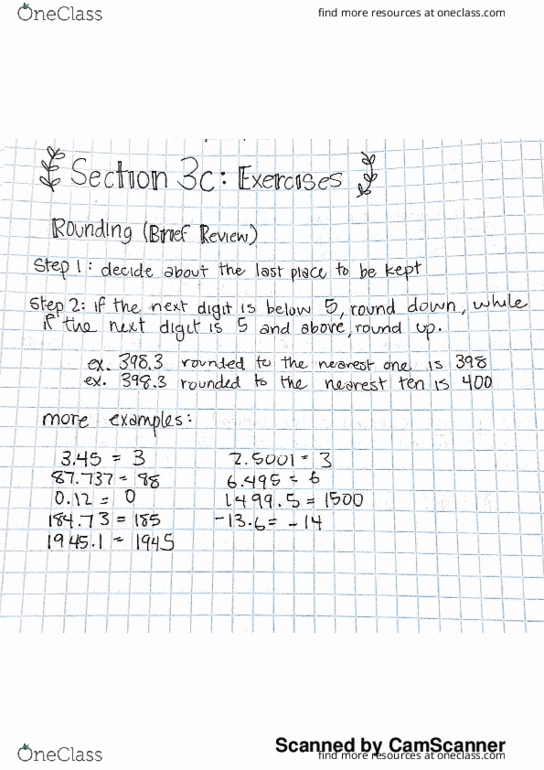 OneClass
find more resources at oneclass.com
Section 3c: Exercises
Rounding (Brief Review)
Step 1: decide about the last place to be kept
Step 2: if the next digit is below 5, round down, while
if the next digit is 5 and above, round up.
ex. 398.3 rounted to the nearest one is 398
ex. 398.3 rounded to the nearest ten is 400
more examples:
3.45 = 3
87.737 = 88
0.12 = 0
184.73 = 185
1945.1 = 1945
2.5001 = 3
6.495 = 6
1499.5 = 1500
-13.6 = -14
Scanned by CamScanner
OneClass
find more resources at oneclass.com